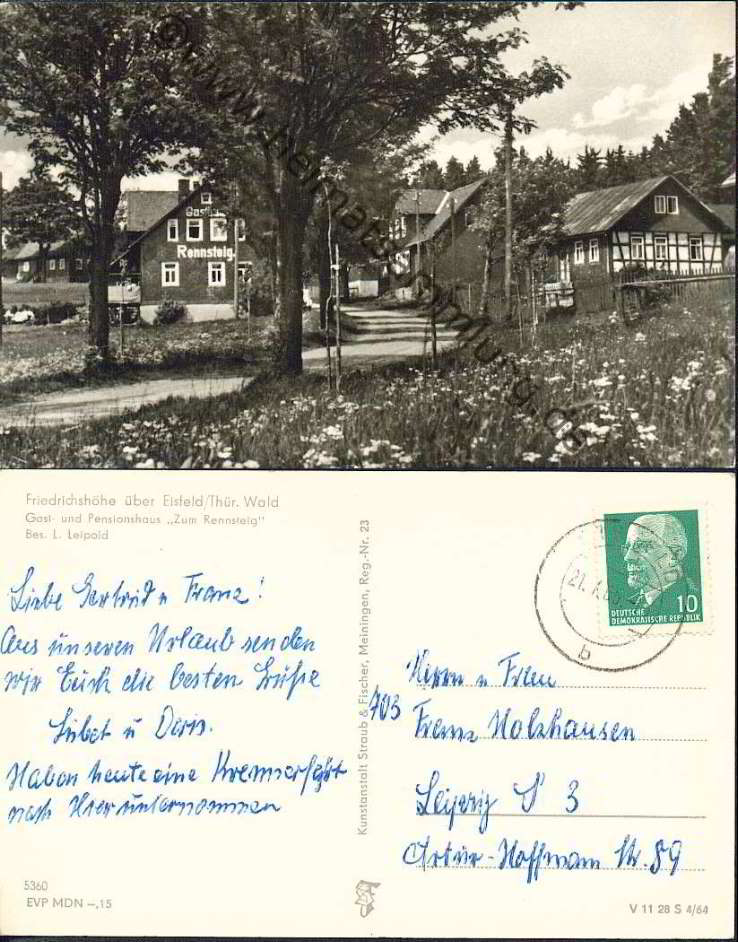 © www.heimatsammlung.de
Gasth
Rennsteig
Friedrichshöhe über Eisfeld/Thür. Wald
Gast- und Pensionshaus „Zum Rennsteig"
Bes. L. Leipold
Liebe Gertrud u Franz!
Aus unseren Urlaub senden
wir Euch die besten Grüße
u Doris.
Haben heute eine Kremserfahrt
nach Hier unternommen
5360
EVP MDN –,15
Kunstanstalt Straub & Fischer, Meiningen, Reg.-Nr. 23
21.
b
10
DEUTSCHE
DEMOKRATISCHE REPUBLIK
Herrn u Frau
703
Franz Holzhausen
Leipzig S 3
Artur-Hoffmann Str. 89
V 11 28 S 4/64